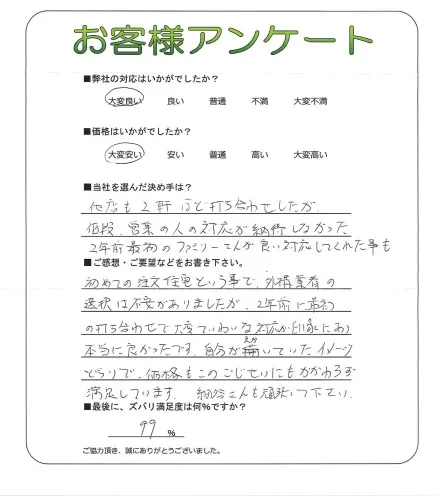 お客様アンケート
■弊社の対応はいかがでしたか?
大変良い 良い 普通 不満 大変不満
■価格はいかがでしたか?
大変安い 安い 普通 高い 大変高い
■当社を選んだ決め手は?
他店も2軒ほど打ち合わせしたが、
価段、営業の人の対応が納得しなかった
2年前最初のファミリーさんが良い対応してくれた事も
■ご感想・ご要望などをお書き下さい。
初めての注文住宅という事で、外構業者の
選択は不安がありましたが、2年前に最初
の打ち合わせで大変ていねいな対応が印象にあり
本当に良かったです。自分が描いていたイメージ
えが
どうりで、価格もこのごじせいにもかかわらず
満足しています。 さんも頑張って下さい。
■最後に、ズバリ満足度は何%ですか?
99 %
ご協力頂き、誠にありがとうございました。